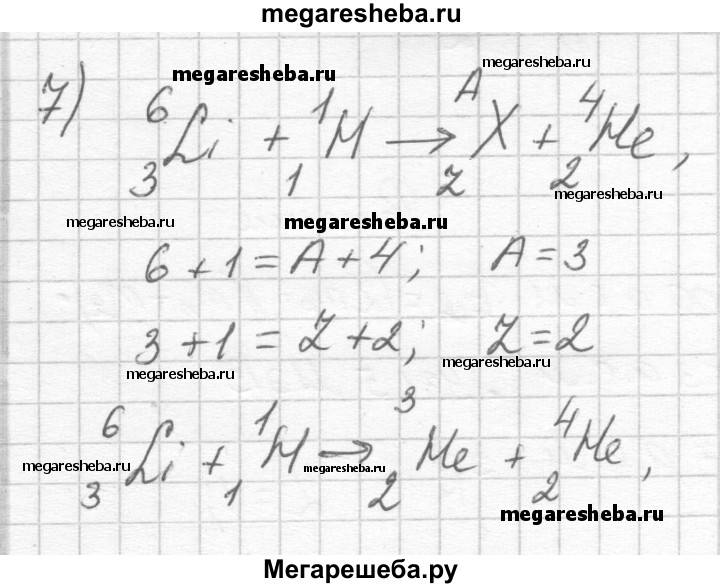 megaresheba.ru
megaresheba.ru megaresheba.ru
7) ⁶₃Li + ¹₁H → ᴬ_Z X + ⁴₂He,
megaresheba.ru megaresheba.ru megaresheba.ru
6 + 1 = A + 4; A = 3
3 + 1 = Z + 2; Z = 2
megaresheba.ru megaresheba.ru
⁶₃Li + ¹₁H → ³₂He + ⁴₂He,
megaresheba.ru megaresheba.ru megaresheba.ru
Мегарешеба.ру